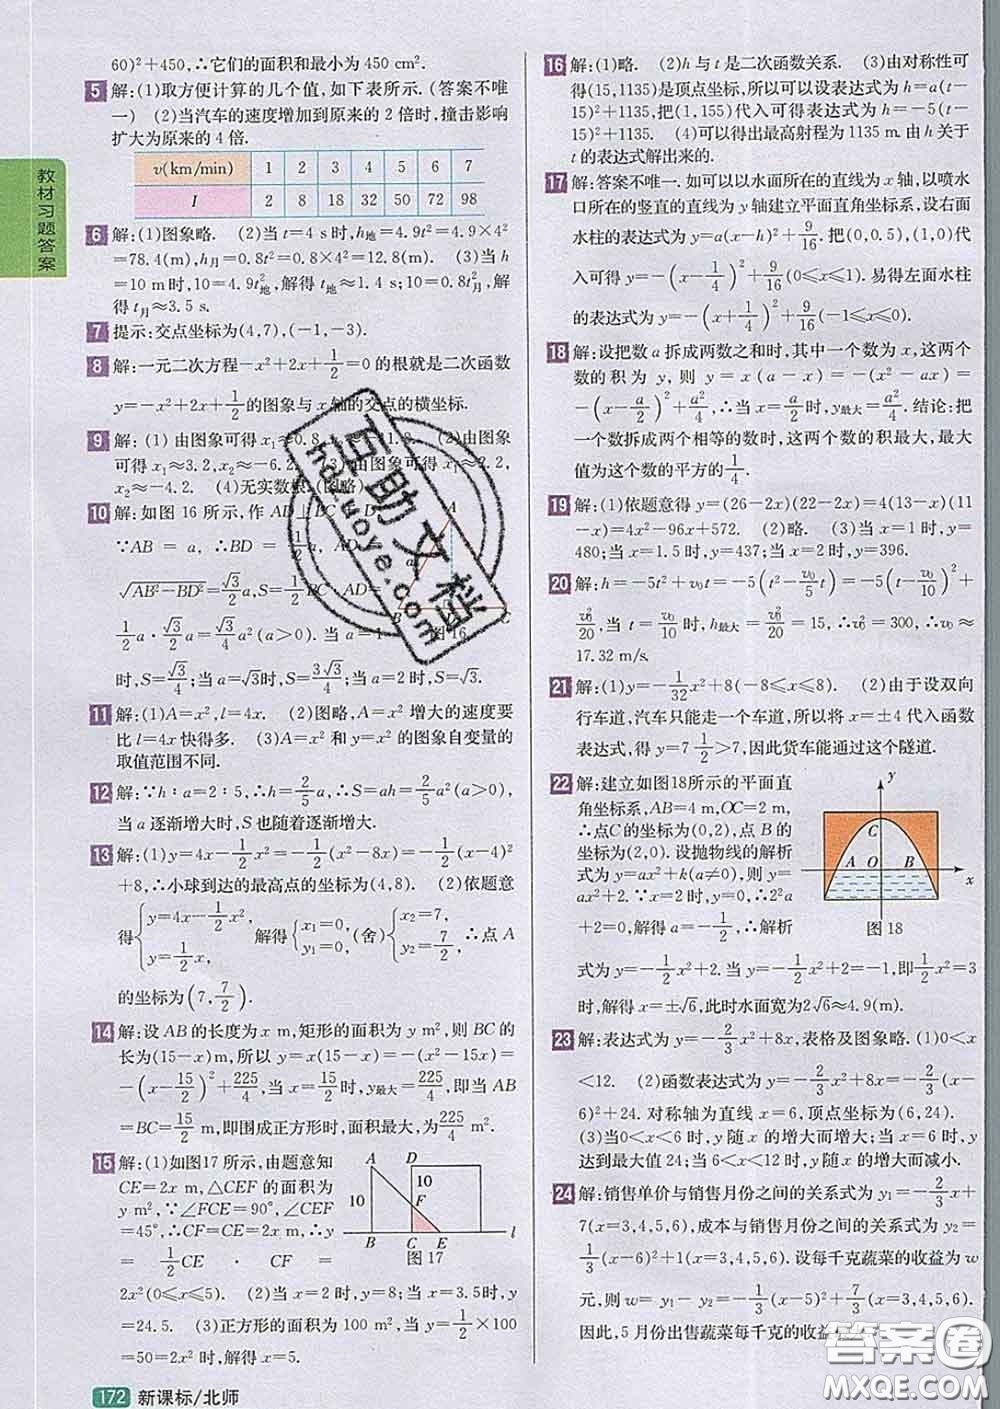 60)²+450,∴它们的面积和最小为450 cm².
5 解:(1)取方便计算的几个值,如下表所示.(答案不唯
一) (2)当汽车的速度增加到原来的2倍时,撞击影响
扩大为原来的4倍.
v(km/min) 1 2 3 4 5 6 7
I 2 8 18 32 50 72 98
6 解:(1)图象略. (2)当t=4 s时,h地=4.9t²=4.9×4²
=78.4(m),h月=0.8t²=0.8×4²=12.8(m). (3)当h
=10 m时,10=4.9t²地,解得t地≈1.4 s;10=0.8t²月,解
得t月≈3.5 s.
7 提示:交点坐标为(4,7),(-1,-3).
8 解:一元二次方程-x²+2x+1/2=0的根就是二次函数
y=-x²+2x+1/2的图象与x轴的交点的横坐标.
9 解:(1)由图象可得x₁≈0.8, 1.8. (2)由图象
可得x₁≈3.2,x₂≈-6.2. (3)由图象可得x₁≈2.2,
x₂≈-4.2. (4)无实数根.(图略)
10 解:如图16所示,作AD⊥BC
∵AB=a,∴BD=1/2a
√(AB²-BD²)=√3/2 a,∴S=1/2 BC·AD=
1/2 a·√3/2 a=√3/4 a²(a>0). 当a=1
时,S=√3/4;当a=√3时,S=3√3/4;当a=2时,S=√3.
A B C 图16
11 解:(1)A=x²,l=4x. (2)图略,A=x²增大的速度要
比l=4x快得多. (3)A=x²和y=x²的图象自变量的
取值范围不同.
12 解:∵h∶a=2∶5,∴h=2/5 a,∴S=ah=2/5 a²(a>0),
当a逐渐增大时,S也随着逐渐增大.
13 解:(1)y=4x-1/2x²=-1/2(x²-8x)=-1/2(x-4)²
+8,∴小球到达的最高点的坐标为(4,8). (2)依题意
得{y=4x-1/2x², y=1/2x, 解得{x₁=0, y₁=0, (舍){x₂=7, y₂=7/2, ∴点A
的坐标为(7,7/2).
14 解:设AB的长度为x m,矩形的面积为y m²,则BC的
长为(15-x)m,所以y=x(15-x)=-(x²-15x)=
-(x-15/2)²+225/4,当x=15/2时,y最大=225/4,即当AB
=BC=15/2时,即围成正方形时,面积最大,为225/4 m².
15 解:(1)如图17所示,由题意知
CE=2x m,△CEF的面积为
y m². ∵∠FCE=90°,∠CEF
=45°,∴CF=CE=2x m,∴y
=1/2 CE · CF =
A D 10 10 F B C E l
图17
2x²(0≤x≤5). (2)当x=2时,y=8;当x=3.5时,y=
24.5. (3)正方形的面积为100 m²,当y=1/2×100
=50=2x²时,解得x=5.
172 新课标/北师
16 解:(1)略. (2)h与t是二次函数关系. (3)由对称性可
得(15,1135)是顶点坐标,所以可以设表达式为h=a(t-
15)²+1135,把(1,155)代入可得表达式为h=-5(t-
15)²+1135. (4)可以得出最高射程为1135 m.由h关于
t的表达式解出来的.
17 解:答案不唯一.如可以以水面所在的直线为x轴,以喷水
口所在的竖直的直线为y轴建立平面直角坐标系,设右面
水柱的表达式为y=a(x-h)²+9/16. 把(0,0.5),(1,0)代
入可得y=-(x-1/4)²+9/16(0≤x≤1). 易得左面水柱
的表达式为y=-(x+1/4)²+9/16(-1≤x≤0).
18 解:设把数a拆成两数之和时,其中一个数为x,这两个
数的积为y,则y=x(a-x)=-(x²-ax)=
-(x-a/2)²+a²/4,∴当x=a/2时,y最大=a²/4.结论:把
一个数拆成两个相等的数时,这两个数的积最大,最大
值为这个数的平方的1/4.
19 解:(1)依题意得y=(26-2x)(22-2x)=4(13-x)(11
-x)=4x²-96x+572. (2)略. (3)当x=1时,y=
480;当x=1.5时,y=437;当x=2时,y=396.
20 解:h=-5t²+v₀t=-5(t²-v₀/5 t)=-5(t-v₀/10)²+
v₀²/20,当t=v₀/10时,h最大=v₀²/20=15,∴v₀²=300,∴v₀≈
17.32 m/s.
21 解:(1)y=-1/32x²+8(-8≤x≤8). (2)由于设双向
行车道,汽车只能走一个车道,所以将x=±4代入函数
表达式,得y=7 1/2>7,因此货车能通过这个隧道.
22 解:建立如图18所示的平面直
角坐标系,AB=4 m,OC=2 m,
∴点C的坐标为(0,2),点B的
坐标为(2,0).设抛物线的解析
式为y=ax²+k(a≠0),则y=
ax²+2.当x=2时,y=0,∴2²a
+2=0.解得a=-1/2,∴解析
y C A O B x
图18
式为y=-1/2x²+2.当y=-1/2x²+2=-1,即1/2x²=3
时,解得x=±√6,此时水面宽为2√6≈4.9(m).
23 解:表达式为y=-2/3x²+8x,表格及图象略.(1)0<x
<12. (2)函数表达式为y=-2/3x²+8x=-2/3(x-
6)²+24.对称轴为直线x=6,顶点坐标为(6,24).
(3)当0<x<6时,y随x的增大而增大;当x=6时,y
达到最大值24;当6<x<12时,y随x的增大而减小.
24 解:销售单价与销售月份之间的关系式为y₁=-2/3x+
7(x=3,4,5,6),成本与销售月份之间的关系式为y₂=
1/3(x-6)²+1(x=3,4,5,6).设每千克蔬菜的收益为w
元,则w=y₁-y₂=-1/3(x-5)²+7/3(x=3,4,5,6).
因此,5月份出售蔬菜每千克的收益
教材习题答案
互助文档
hazuoye.com
答案圈
MXQE.COM